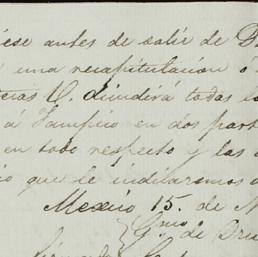 ese antes de salir de
una recapitulacion ó
V. dividirá todas
á Tampico en dos part
en todo respecto y las
que le indicaremos
Mexico 15. de
de